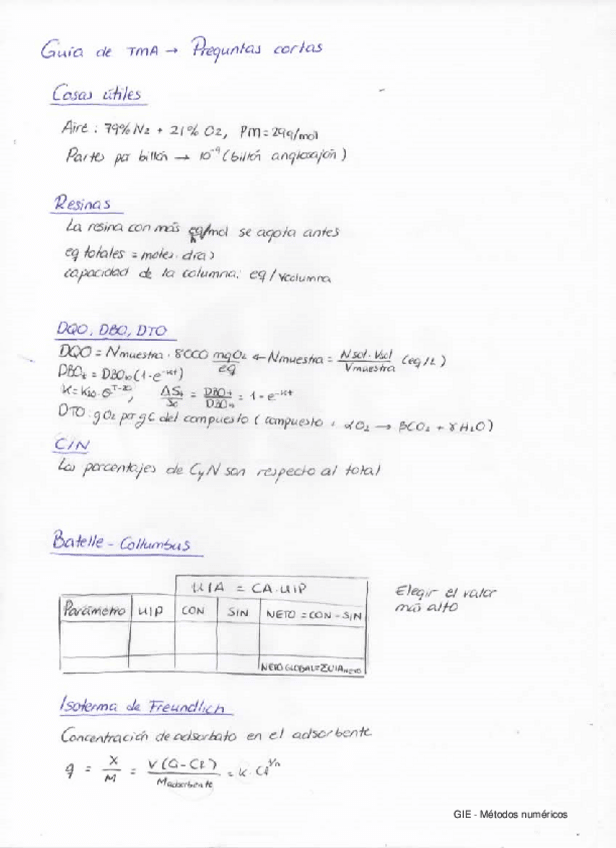 Guía de TMA → Preguntas cortas
Cosas útiles
Aire: 79% N2 + 21% O2, PM = 29g/mol
Partes por billón → 10⁻⁹ (billón anglosajón)
Resinas
La resina con más eq/mol se agota antes
eq totales = moles · día)
capacidad de la columna: eq/Vcolumna
DQO, DBO, DTO
DQO = Nmuestra · 8000 mgO2/eq ← Nmuestra = Nsol · Vsol/Vmuestra (eq/L)
DBOt = DBO∞(1-e^-kt)
K = K20 · θ^T-20, ΔSt/S0 = DBOt/DBO∞ = 1-e^-kt
DTO: gO2 por gC del compuesto (compuesto + αO2 → βCO2 + γH2O)
C/N
Los porcentajes de C y N son respecto al total
Batelle - Collumbus
UIA = CA · UIP
Parámetro UIP CON SIN NETO = CON - SIN
NETO GLOBAL = ΣUIA NETO
Elegir el valor
más alto
Isoterma de Freundlich
Concentración de adsorbato en el adsorbente
q = X/M = V(Ci-Cf)/Madsorbente = K · Cf^1/n
GIE - Métodos numéricos